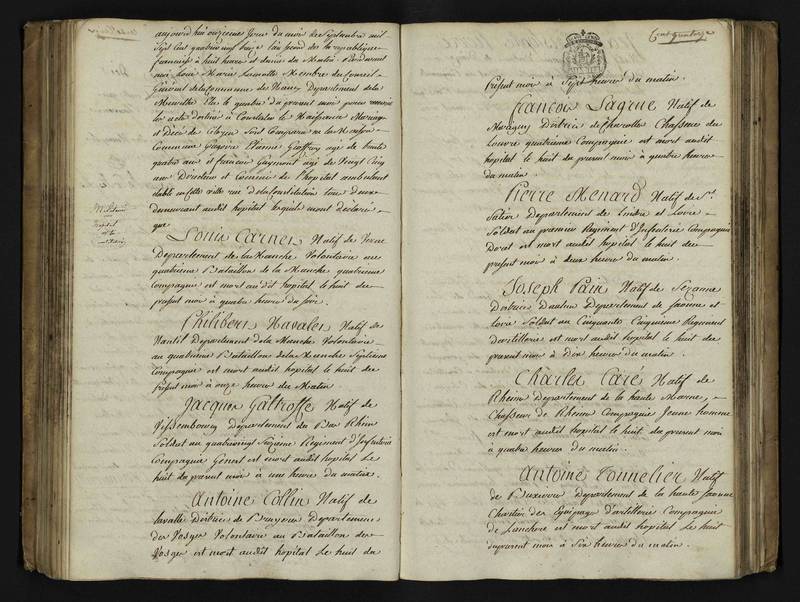 aujourd'hui onzieme jour du mois de Septembre mil
Sept Cent quatre vingt treize l'an second de la republique
francaise à huit heures et demie du Matin Pardevant
moi Louis Marie Lamotte Membre du Conseil
Général de la Commune de Nancy Departement de la
Meurthe Elu le quatre du present mois pour recevoir
les actes destinés à Constater les Naissances Mariages
et Décès des Citoyens Sont Comparus en la Maison
Commune Etienne Geoffroy agé de trente
quatre ans et francois agé de Vingt Cinq
ans Directeur et Commis de l'hopital ambulant
établi en cette ville rue de la Constitution tous deux
demeurant audit hopital lesquels m'ont déclaré
que
Militaire
hopital
Louis Carnet Natif de
Departement de la Manche Volontaire au
quatrieme Bataillon de la Manche quatrieme
Compagnie est mort audit hopital le huit du
present mois à quatre heures du soir.
Philibert Navalet Natif de
Nantil Departement de la Manche Volontaire
au quatrieme Bataillon de la Manche Septieme
Compagnie est mort audit hopital le huit du
present mois à onze heures du Matin
Jacques Galtroffe Natif de
Vissembourg departement du Bas Rhin
Soldat au quatrevingt Seizieme Regiment d'Infanterie
Compagnie Genert est mort audit hopital le
huit du present mois à une heure du matin.
Antoine Collin Natif de
lavallé District de Bruyeres Departement
des Vosges Volontaire au Bataillon des
Vosges est mort audit hopital le huit du
Cent quatorze
present mois à Sept heures du matin.
Francois Lagrue Natif de
District de Charolles Chasseur du
Louvre quatrieme Compagnie est mort audit
hopital le huit du present mois à quatre heures
du matin.
Pierre Menard Natif de St
Departement de Lindre et Loire
Soldat au premier Regiment d'Infanterie Compagnie
Dorat est mort audit hopital le huit du
present mois à deux heures du matin.
Joseph Pain Natif de Sezanne
District Dautun Departement de Saone et
Loire Soldat au Cinquante Cinquieme Regiment
Dartillerie est mort audit hopital le huit du
present mois à Dix heures du matin.
Charles Caré Natif de
Rheims Departement de la haute Marne,
Chasseur de Rheims Compagnie Jeune homme
est mort audit hopital le huit du present mois
à quatre heures du matin.
Antoine Tonnelier Natif
de Departement de la haute Saone
Chartier des Equipages Dartillerie Compagnie
de est mort audit hopital le huit
du present mois à Six heures du matin.